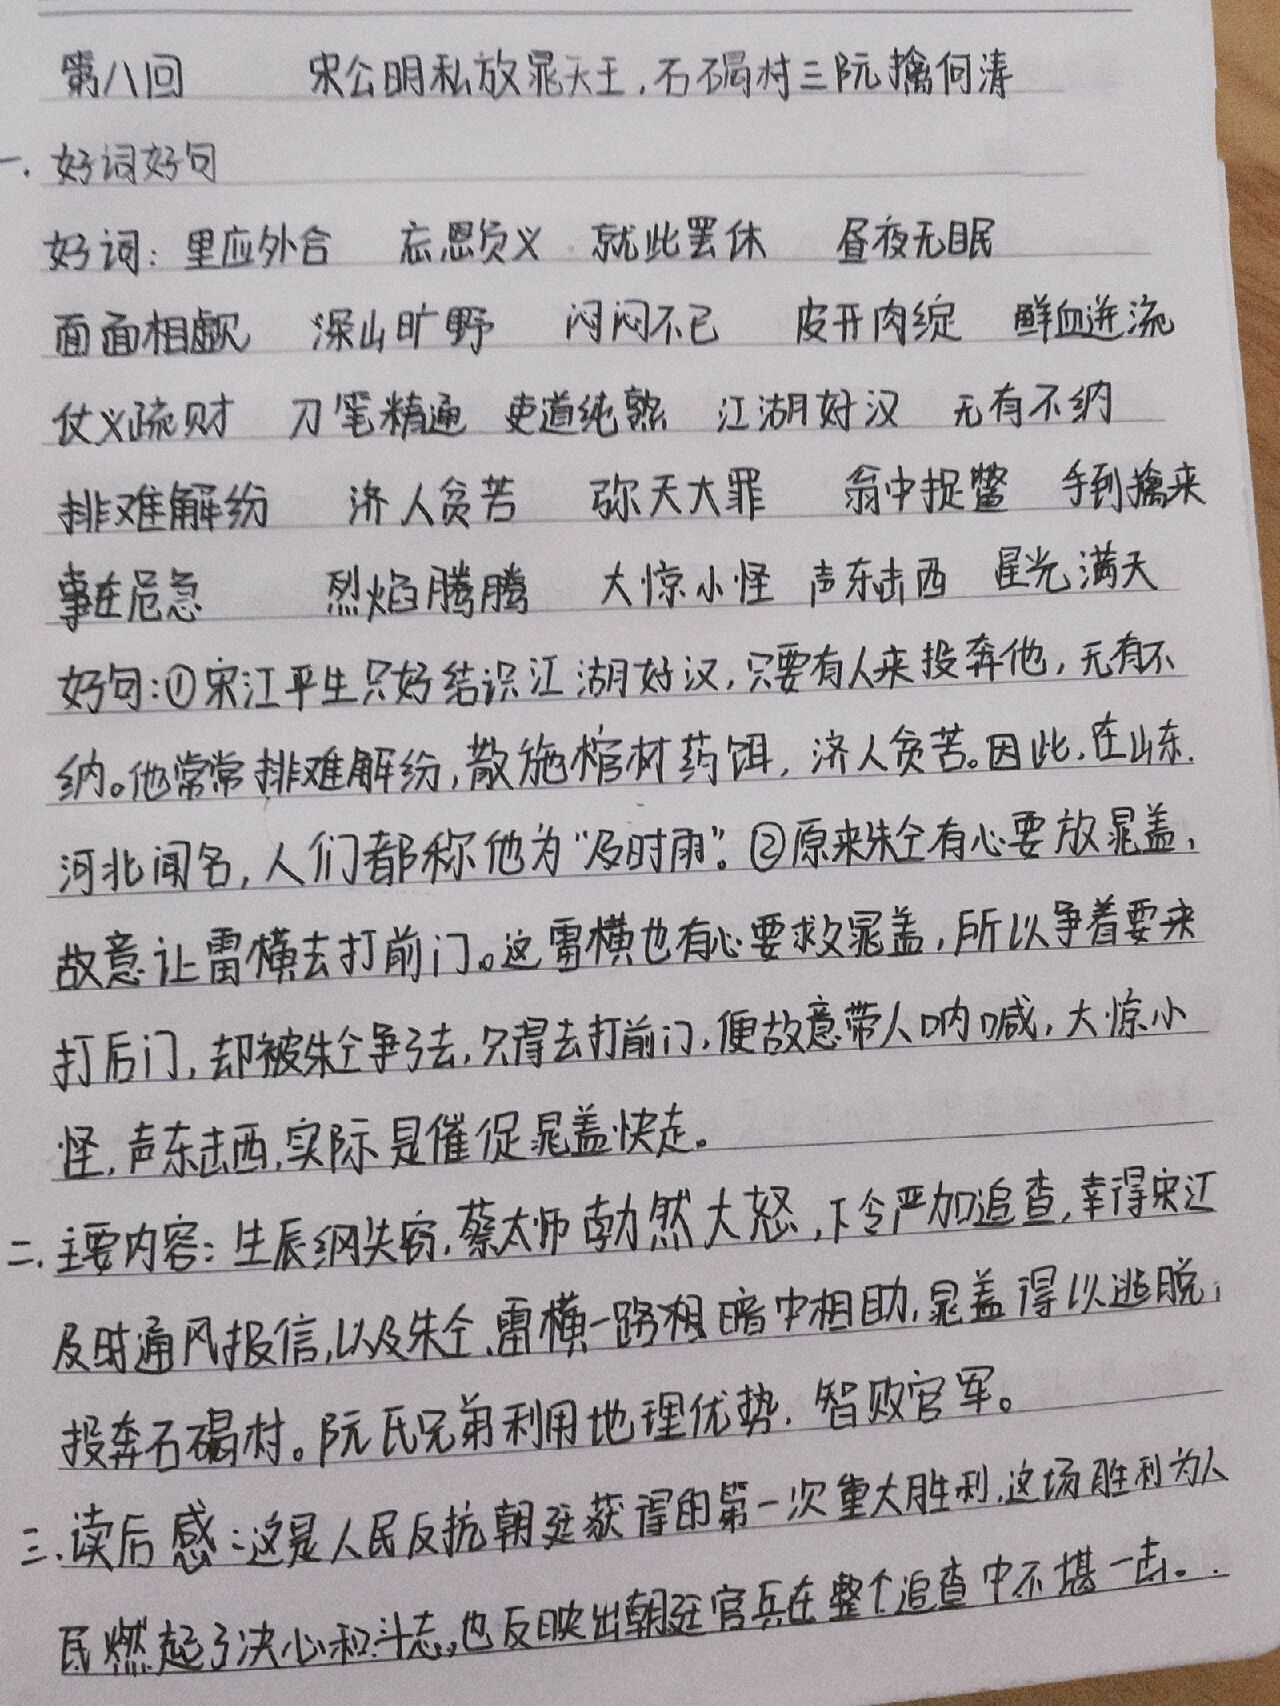 第八回 宋公明私放晁天王,石碣村三阮擒何涛
一.好词好句
好词:里应外合 忘恩负义 就此罢休 昼夜无眠
面面相觑 深山旷野 闷闷不已 皮开肉绽 鲜血迸流
仗义疏财 刀笔精通 吏道纯熟 江湖好汉 无有不纳
排难解纷 济人贫苦 弥天大罪 瓮中捉鳖 手到擒来
事在危急 烈焰腾腾 大惊小怪 声东击西 星光满天
好句:①宋江平生只好结识江湖好汉,只要有人来投奔他,无有不
纳。他常常排难解纷,散施棺材药饵,济人贫苦。因此,在山东.
河北闻名,人们都称他为“及时雨”。②原来朱仝有心要放晁盖,
故意让雷横去打前门。这雷横也有心要救晁盖,所以争着要来
打后门,却被朱仝争了去,只得去打前门,便故意带人呐喊,大惊小
怪,声东击西,实际是催促晁盖快走。
二.主要内容:生辰纲失窃,蔡太师勃然大怒,下令严加追查,幸得宋江
及时通风报信,以及朱仝、雷横一路相暗中相助,晁盖得以逃脱,
投奔石碣村。阮氏兄弟利用地理优势,智败官军。
三.读后感:这是人民反抗朝廷获得的第一次重大胜利,这场胜利为人
民燃起了决心和斗志,也反映出朝廷官兵在整个追查中不堪一击。